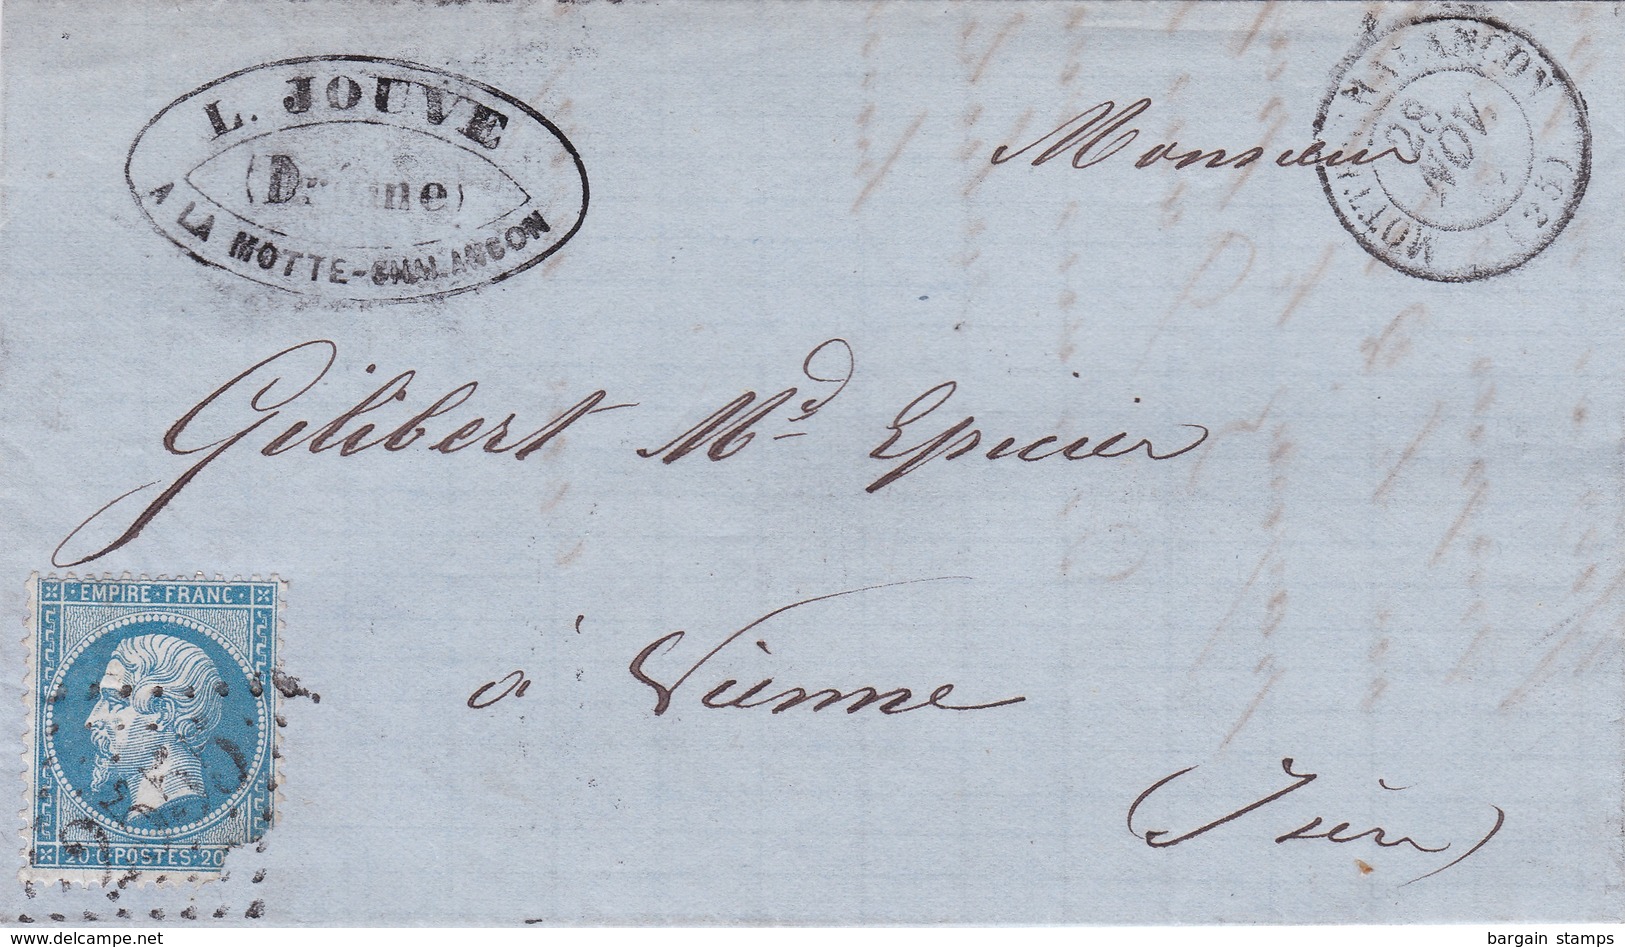 L. JOUVE
(Drôme)
A LA MOTTE-CHALANCON
MOTTE-CHALANCON
28
NOV.
(25)
Monsieur
Gilibert Md Epicier
à Vienne
(Isère)
EMPIRE FRANC
20 C POSTES 20
www.delcampe.net
bargain stamps